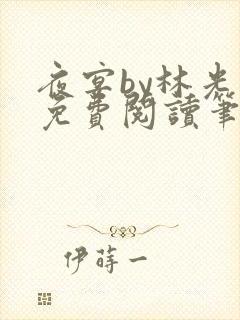 夜宴by林光
免費閱讀筆
伊蒔一